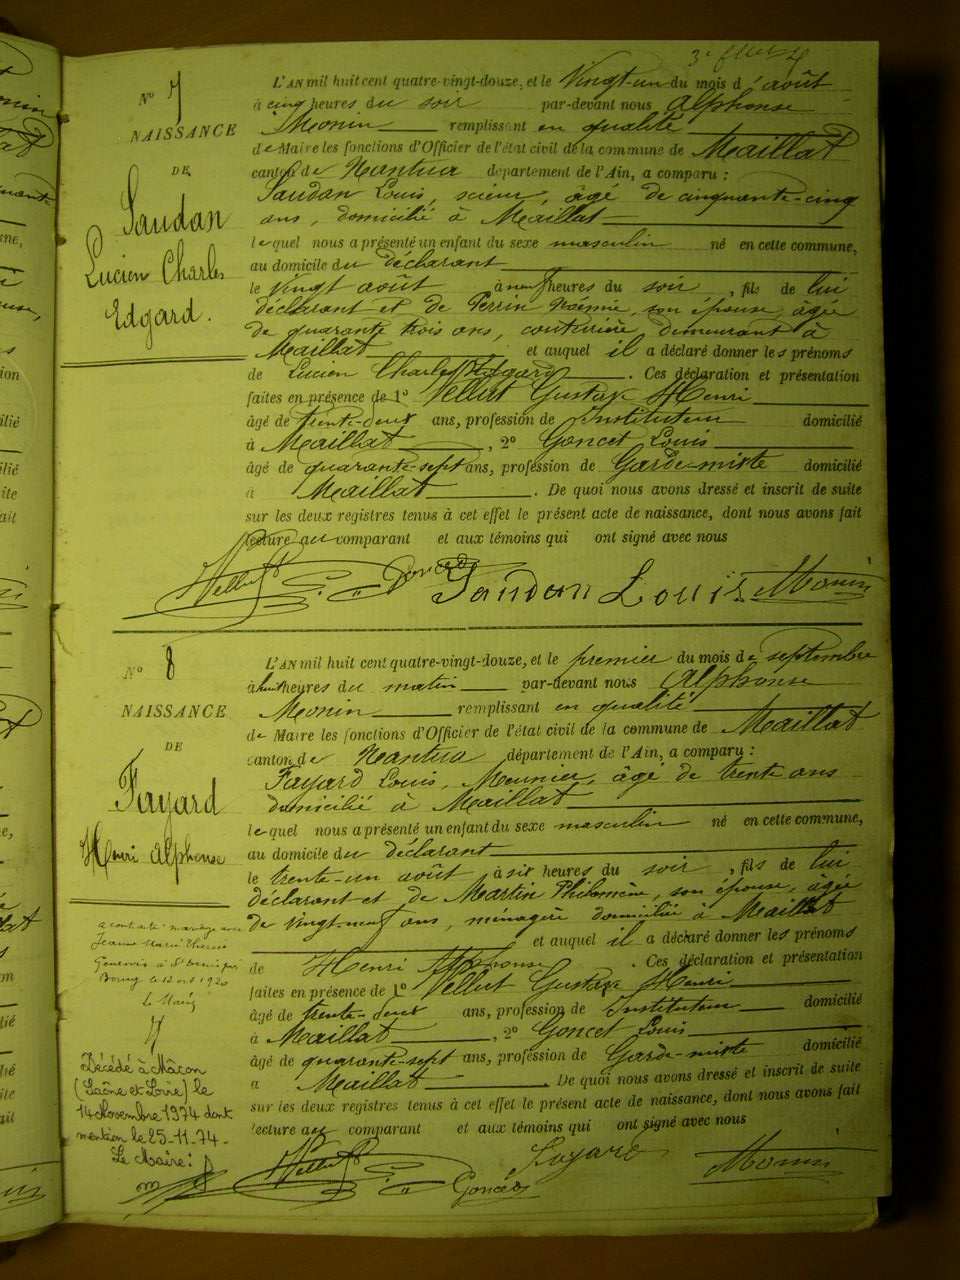 N° 7
NAISSANCE
DE
Saudan
Lucien Charles
Edgard.
L'AN mil huit cent quatre-vingt-douze, et le Vingt-un du mois d'août
à cinq heures du soir par-devant nous Alphonse
Monin remplissant en qualité
de Maire les fonctions d'Officier de l'état civil de la commune de Maillat
canton de Nantua département de l'Ain, a comparu :
Saudan Louis, scieur, âgé de cinquante-cinq
ans, domicilié à Maillat
lequel nous a présenté un enfant du sexe masculin né en cette commune,
au domicile du déclarant
le vingt août à neuf heures du soir, fils de lui
déclarant et de Perrin Noémie, son épouse, âgée
de quarante trois ans, couturière, demeurant à
Maillat et auquel il a déclaré donner les prénoms
de Lucien Charles Edgard. Ces déclaration et présentation
faites en présence de 1° Vellut Gustave Henri
âgé de trente-deux ans, profession de Instituteur domicilié
à Maillat, 2° Goncet Louis
âgé de quarante-sept ans, profession de Garde-mixte domicilié
à Maillat. De quoi nous avons dressé et inscrit de suite
sur les deux registres tenus à cet effet le présent acte de naissance, dont nous avons fait
lecture au comparant et aux témoins qui ont signé avec nous
Vellut Goncet Saudan Louis Monin
N° 8
NAISSANCE
DE
Fayard
Henri Alphonse
L'AN mil huit cent quatre-vingt-douze, et le premier du mois de septembre
à huit heures du matin par-devant nous Alphonse
Monin remplissant en qualité
de Maire les fonctions d'Officier de l'état civil de la commune de Maillat
canton de Nantua département de l'Ain, a comparu :
Fayard Louis, Meunier, âgé de trente ans
domicilié à Maillat
lequel nous a présenté un enfant du sexe masculin né en cette commune,
au domicile du déclarant
le trente-un août à six heures du soir, fils de lui
déclarant et de Martin Philomène, son épouse, âgée
de vingt-neuf ans, ménagère domiciliée à Maillat
et auquel il a déclaré donner les prénoms
de Henri Alphonse. Ces déclaration et présentation
faites en présence de 1° Vellut Gustave Henri
âgé de trente-deux ans, profession de Instituteur domicilié
à Maillat, 2° Goncet Louis
âgé de quarante-sept ans, profession de Garde-mixte domicilié
à Maillat. De quoi nous avons dressé et inscrit de suite
sur les deux registres tenus à cet effet le présent acte de naissance, dont nous avons fait
lecture au comparant et aux témoins qui ont signé avec nous
Vellut Goncet Fayard Monin
a contracté mariage avec
Jeanne Marie
à St Denis près
Bourg le 12 oct 1920
Le Maire
Décédé à Mâcon
(Saône et Loire) le
14 Novembre 1974 dont
mention le 25-11-74-
Le Maire :